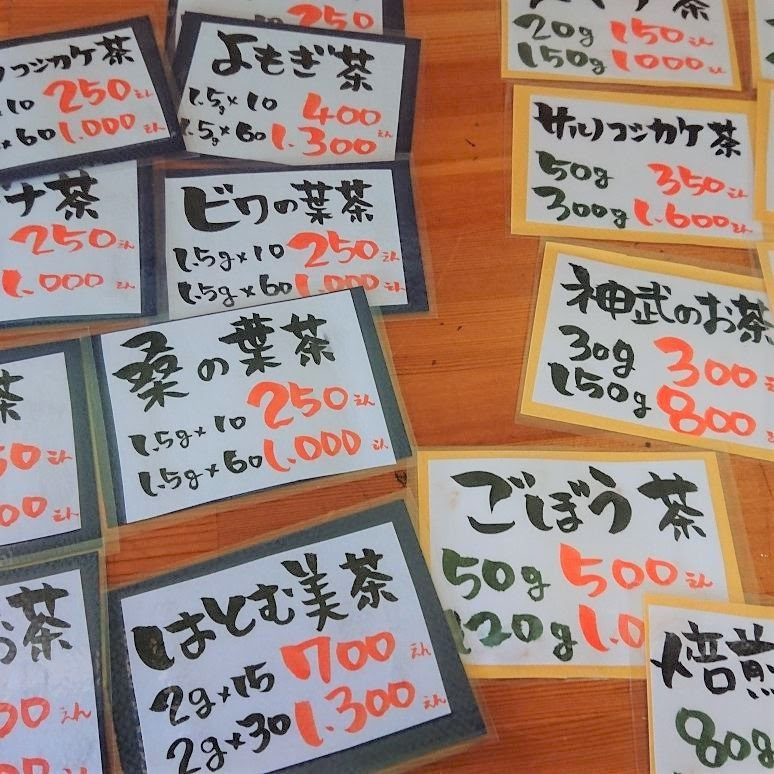 250
コシカケ茶
10 250えん
60 1.000えん
よもぎ茶
1.5g×10 400
1.5g×60 1.300えん
ナ茶
250えん
1.000えん
ビワの葉茶
1.5g×10 250えん
1.5g×60 1.000えん
桑の葉茶
1.5g×10 250えん
1.5g×60 1.000えん
茶
50えん
えん
はとむ美茶
2g×15 700えん
2g×30 1.300えん
お茶
えん
茶
20g 150えん
150g 1000えん
サルノコシカケ茶
50g 350えん
300g 1.600えん
神武のお茶
30g 300えん
150g 800
ごぼう茶
50g 500えん
120g 1.0
焙煎
80g